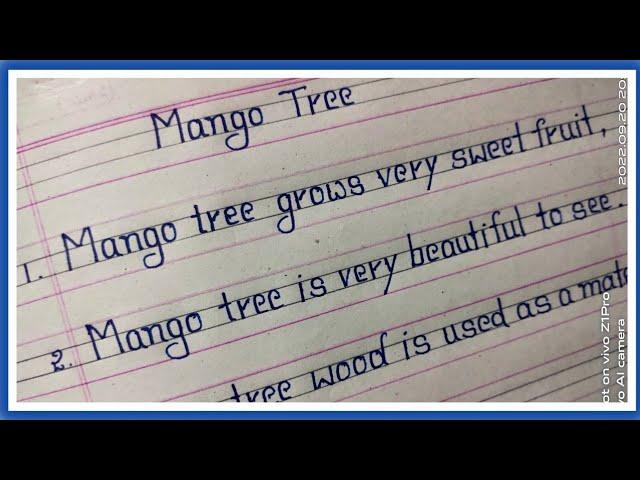 Mango Tree
1. Mango tree grows very sweet fruit,
2. Mango tree is very beautiful to see.
tree wood is used as a
2022.09.20 20
on vivo Z1Pro
AI camera